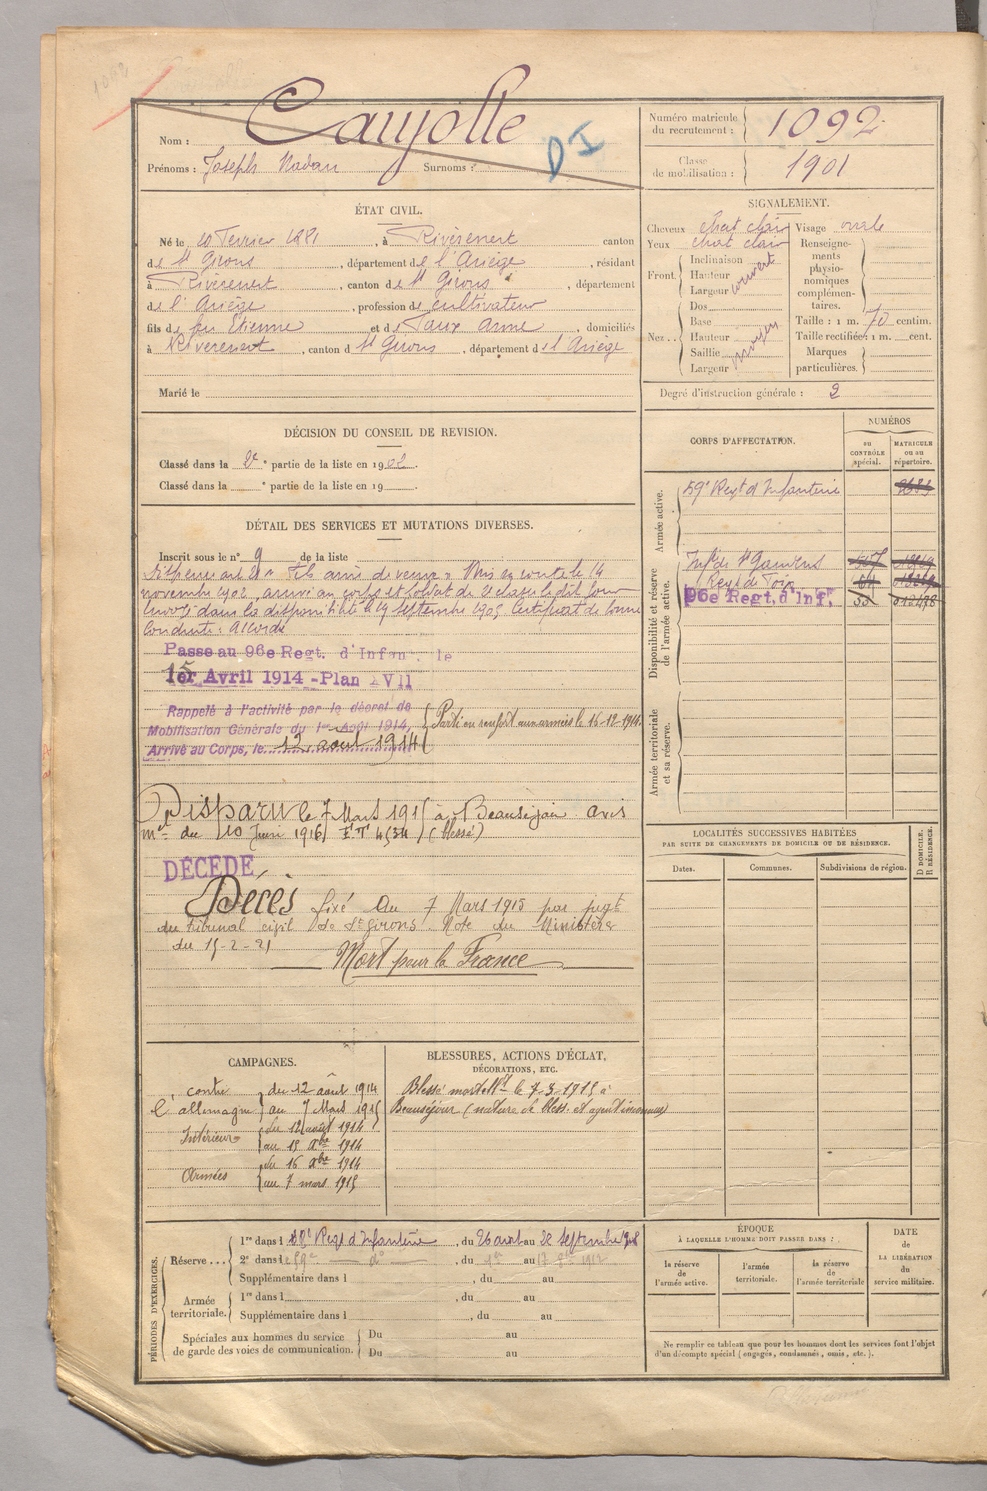 1092
Nom : Caujolle
D I
Prénoms : Joseph Nadau Surnoms :
Numéro matricule du recrutement : 1092
Classe de mobilisation : 1901
ÉTAT CIVIL.
Né le 20 Février 1881, à Rivèrenert canton
de St Girons, département de l'Ariège, résidant
à Rivèrenert, canton de St Girons, département
de l'Ariège, profession de cultivateur
fils de feu Etienne et de Taux Anne, domiciliés
à Rivèrenert, canton d St Girons, département de l'Ariège
Marié le
SIGNALEMENT.
Cheveux chat clair Visage ovale
Yeux chat clair
Front. Inclinaison Hauteur Largeur couvert
Nez.. Dos Base Hauteur Saillie Largeur moyen
Renseignements physionomiques complémentaires.
Taille : 1 m. 70 centim.
Taille rectifiée : 1 m. cent.
Marques particulières.
Degré d'instruction générale : 2
DÉCISION DU CONSEIL DE REVISION.
Classé dans la 2e partie de la liste en 1902.
Classé dans la partie de la liste en 19
CORPS D'AFFECTATION.
NUMÉROS
au CONTRÔLE spécial.
MATRICULE ou au répertoire.
Armée active.
59e Regt d'Infanterie
Disponibilité et réserve de l'armée active.
Infie de St Gaudens
Regt de Foix
96e Regt. d'Inf.
Armée territoriale et sa réserve.
DÉTAIL DES SERVICES ET MUTATIONS DIVERSES.
Inscrit sous le n° 9 de la liste
Dispensé art 21 « Fils ainé de veuve » Mis en route le 14
novembre 1902, arrivé au corps et soldat de 2e classe le dit jour
Envoyé dans la disponibilité le 19 septembre 1903, Certificat de bonne
Conduite : Accordé
Passe au 96e Regt. d'Infan. le
1er Avril 1914 - Plan XVII
Rappelé à l'activité par le décret de
Mobilisation Générale du 1er Août 1914,
Arrivé au Corps, le 12 août 1914
Parti en renfort aux armées le 16-12-1914.
Disparu le 7 Mars 1915 à Beauséjour avis
mel du 10 Juin 1916 (blessé)
DÉCÉDÉ
Décès fixé au 7 Mars 1915 par jugt
du tribunal civil de St Girons. Note du Ministère
du 15-2-21
Mort pour la France
LOCALITÉS SUCCESSIVES HABITÉES
PAR SUITE DE CHANGEMENTS DE DOMICILE OU DE RÉSIDENCE.
Dates. Communes. Subdivisions de région.
D DOMICILE. R RÉSIDENCE.
CAMPAGNES.
contre l'allemagne du 12 août 1914
au 7 Mars 1915
Intérieur du 12 août 1914
au 15 Xbre 1914
Armées du 16 Xbre 1914
au 7 mars 1915
BLESSURES, ACTIONS D'ÉCLAT,
DÉCORATIONS, ETC.
Blessé mortellt le 7-3-1915 à
Beauséjour (nature de bless. et agent inconnus)
PÉRIODES D'EXERCICES.
Réserve... 1re dans l Regt d'Infanterie, du 26 août au 22 Septembre 1908
2e dans le 59e do, du au 17 1912
Supplémentaire dans l , du au
Armée territoriale. 1re dans l , du au
Supplémentaire dans l , du au
Spéciales aux hommes du service de garde des voies de communication. Du au
Du au
ÉPOQUE
À LAQUELLE L'HOMME DOIT PASSER DANS :
la réserve de l'armée active.
l'armée territoriale.
la réserve de l'armée territoriale
DATE de LA LIBÉRATION du service militaire.
Ne remplir ce tableau que pour les hommes dont les services font l'objet
d'un décompte spécial (engagés, condamnés, omis, etc.).